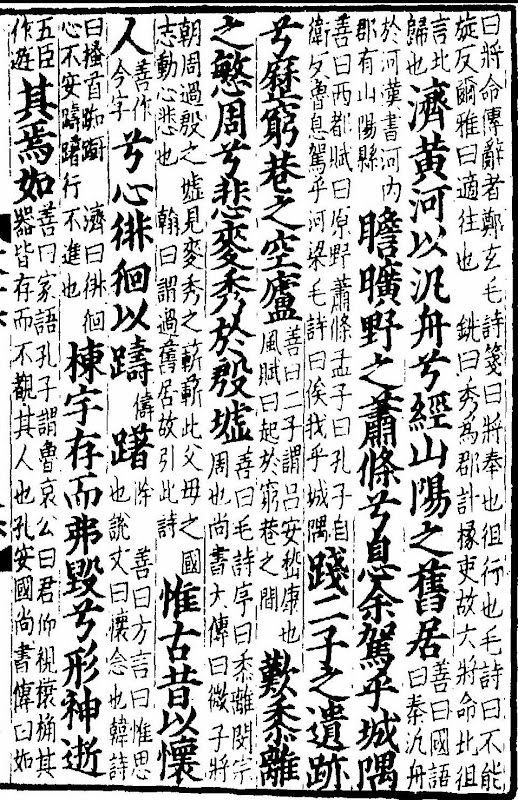 曰將命傳辭者鄭玄毛詩箋曰將奉也徂行也毛詩曰不能旋反爾雅曰適往也 銑曰秀為郡計掾吏故大將命北徂
言北歸也濟黃河以汎舟兮經山陽之舊居善曰國語曰秦汎舟
於河漢書河內郡有山陽縣瞻曠野之蕭條兮息余駕乎城隅
善曰西都賦曰原野蕭條孟子曰孔子自衛反魯息駕乎河梁毛詩曰俟我乎城隅踐二子之遺跡
兮歷窮巷之空廬善曰二子謂呂安嵇康也風賦曰起於窮巷之間歎黍離
之愍周兮悲麥秀於殷墟善曰毛詩序曰黍離閔宗周也尚書大傳曰微子將
朝周過殷之墟見麥秀之蔪蔪此父母之國志動心悲也 翰曰謂過舊居故引此詩惟古昔以懷
人善作今字兮心徘徊以躊儔躇除 善曰方言曰惟思也說文曰懷念也韓詩
曰搔首踟躕 濟曰徘徊心不安躊躇行不進也棟宇存而弗毀兮形神逝
五臣作遊其焉如善曰家語孔子謂魯哀公曰君仰視榱桷其器皆存而不覩其人也孔安國尚書傳曰如